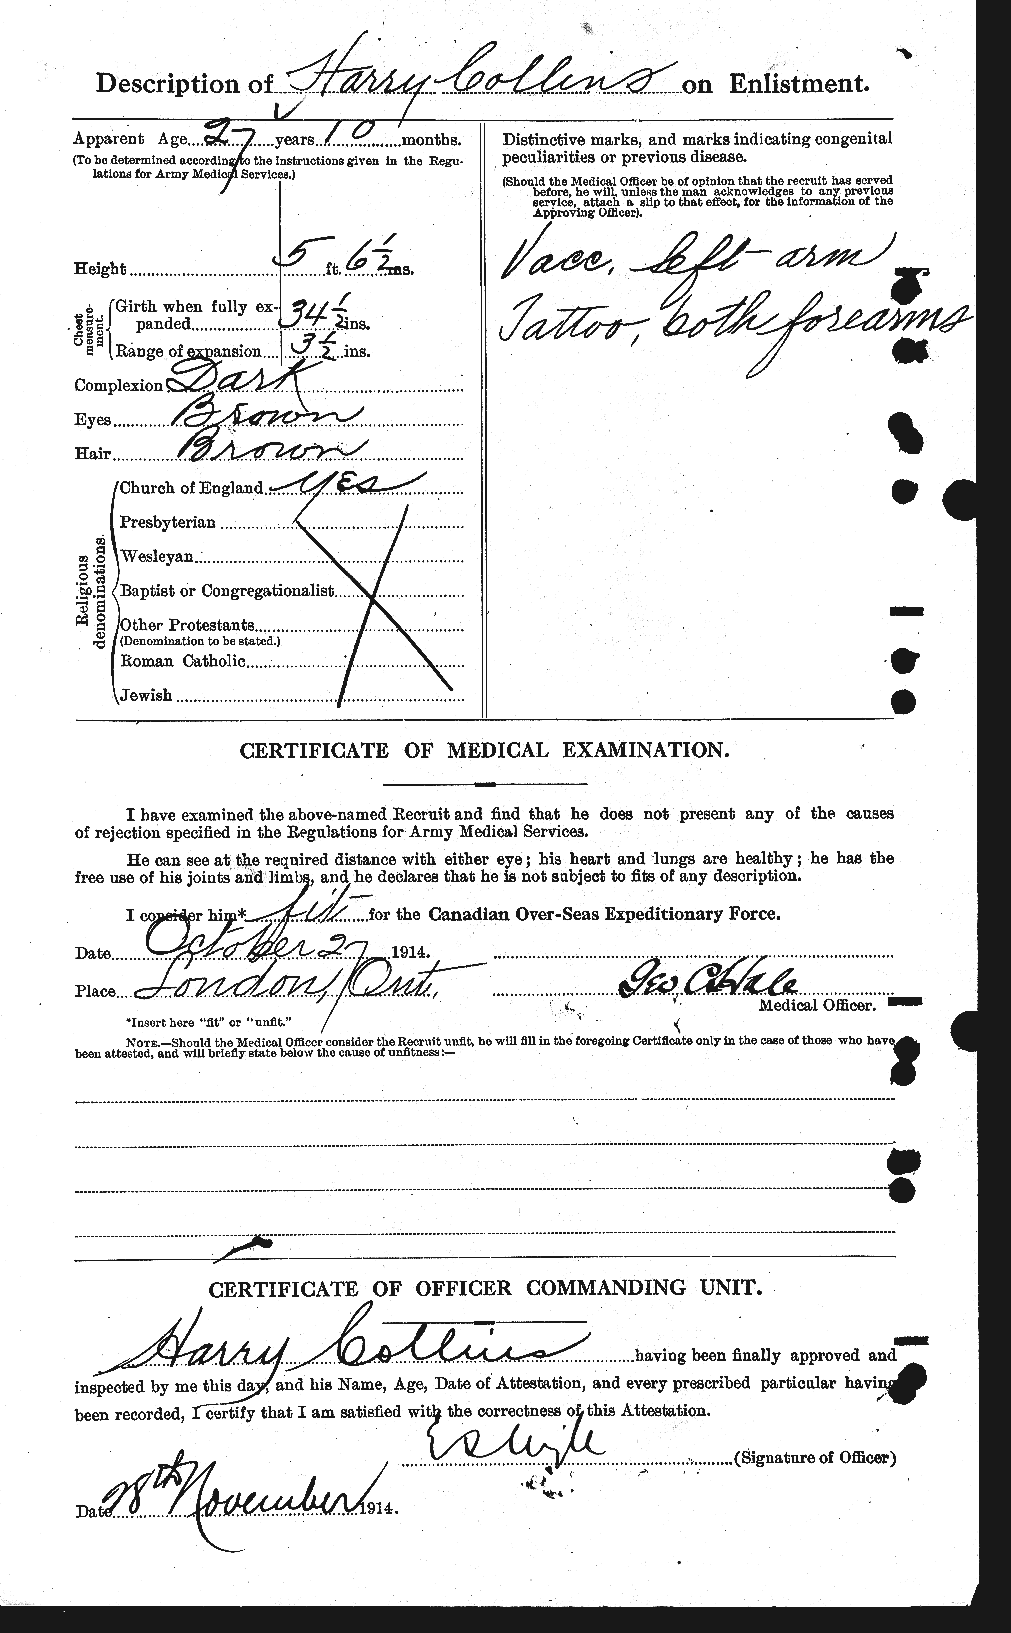 Description of Harry Collins on Enlistment.
Apparent Age 27 years 10 months.
(To be determined according to the instructions given in the Regu-
lations for Army Medical Services.)
Height 5 ft. 6 1/2 ins.
Chest measurement.
Girth when fully ex-
panded 34 1/2 ins.
Range of expansion 3 1/2 ins.
Complexion Dark
Eyes Brown
Hair Brown
Religious denominations.
Church of England Yes
Presbyterian
Wesleyan
Baptist or Congregationalist
Other Protestants
(Denomination to be stated.)
Roman Catholic
Jewish
Distinctive marks, and marks indicating congenital
peculiarities or previous disease.
(Should the Medical Officer be of opinion that the recruit has served
before, he will, unless the man acknowledges to any previous
service, attach a slip to that effect, for the information of the
Approving Officer).
Vacc. left arm
Tattoo, both forearms
CERTIFICATE OF MEDICAL EXAMINATION.
I have examined the above-named Recruit and find that he does not present any of the causes
of rejection specified in the Regulations for Army Medical Services.
He can see at the required distance with either eye; his heart and lungs are healthy; he has the
free use of his joints and limbs, and he declares that he is not subject to fits of any description.
I consider him* fit for the Canadian Over-Seas Expeditionary Force.
Date October 27 1914.
Place London, Ont. Geo. C. Hale
Medical Officer.
*Insert here "fit" or "unfit."
NOTE.—Should the Medical Officer consider the Recruit unfit, he will fill in the foregoing Certificate only in the case of those who have
been attested, and will briefly state below the cause of unfitness:—
CERTIFICATE OF OFFICER COMMANDING UNIT.
Harry Collins having been finally approved and
inspected by me this day, and his Name, Age, Date of Attestation, and every prescribed particular having
been recorded, I certify that I am satisfied with the correctness of this Attestation.
(Signature of Officer)
Date 28th November 1914.